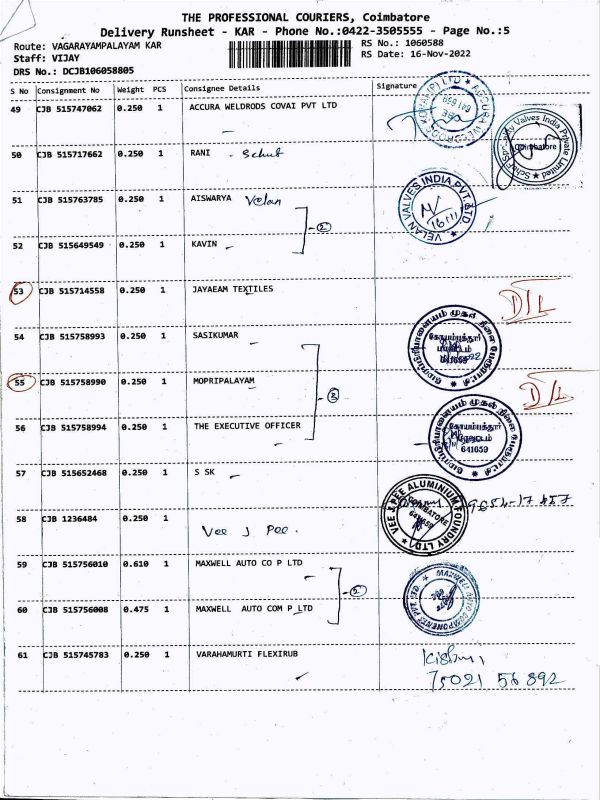 THE PROFESSIONAL COURIERS, Coimbatore
Delivery Runsheet - KAR - Phone No.:0422-3505555 - Page No.:5
Route: VAGARAYAMPALAYAM KAR
RS No.: 1060588
Staff: VIJAY
RS Date: 16-Nov-2022
DRS No.: DCJB106058805
S No Consignment No Weight PCS Consignee Details Signature
49 CJB 515747062 0.250 1 ACCURA WELDRODS COVAI PVT LTD
50 CJB 515717662 0.250 1 RANI - Schuf
Coimbatore
51 CJB 515763785 0.250 1 AISWARYA Velan
VELAN VALVES INDIA PVT. LTD
16/11
2
52 CJB 515649549 0.250 1 KAVIN
53 CJB 515714558 0.250 1 JAYAEAM TEXTILES D/L
54 CJB 515758993 0.250 1 SASIKUMAR
கோயம்புத்தூர்
641659
55 CJB 515758990 0.250 1 MOPRIPALAYAM D/L
3
56 CJB 515758994 0.250 1 THE EXECUTIVE OFFICER
கோயம்புத்தூர்
641659
57 CJB 515652468 0.250 1 S SK
VEE JAY PEE ALUMINIUM FOUNDRY LTD
COIMBATORE
58 CJB 1236484 0.250 1
Vee J Pee.
59 CJB 515756010 0.610 1 MAXWELL AUTO CO P LTD
2
MAXWELL AUTO COMPONENTS PVT. LTD.
60 CJB 515756008 0.475 1 MAXWELL AUTO COM P LTD
61 CJB 515745783 0.250 1 VARAHAMURTI FLEXIRUB
75021 56892